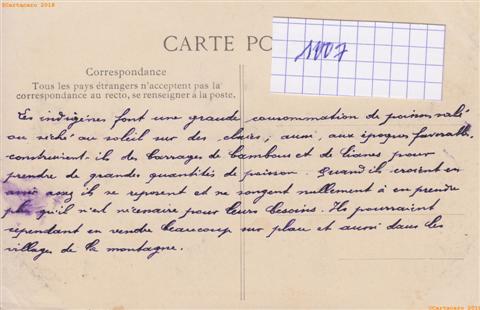 ©Cartacaro 2018
CARTE PO
1007
Correspondance
Tous les pays étrangers n'acceptent pas la
correspondance au recto, se renseigner à la poste.
Les indigènes font une grande consommation de poisson salé
ou séché au soleil sur des claies; aussi, aux époques favorables,
construisent-ils des barrages de bambous et de lianes pour
prendre de grandes quantités de poisson. Quand ils croient en
avoir assez ils se reposent et ne songent nullement à en prendre
plus qu'il n'est nécessaire pour leurs besoins. Ils pourraient
cependant en vendre beaucoup sur place et aussi dans les
villages de la montagne.